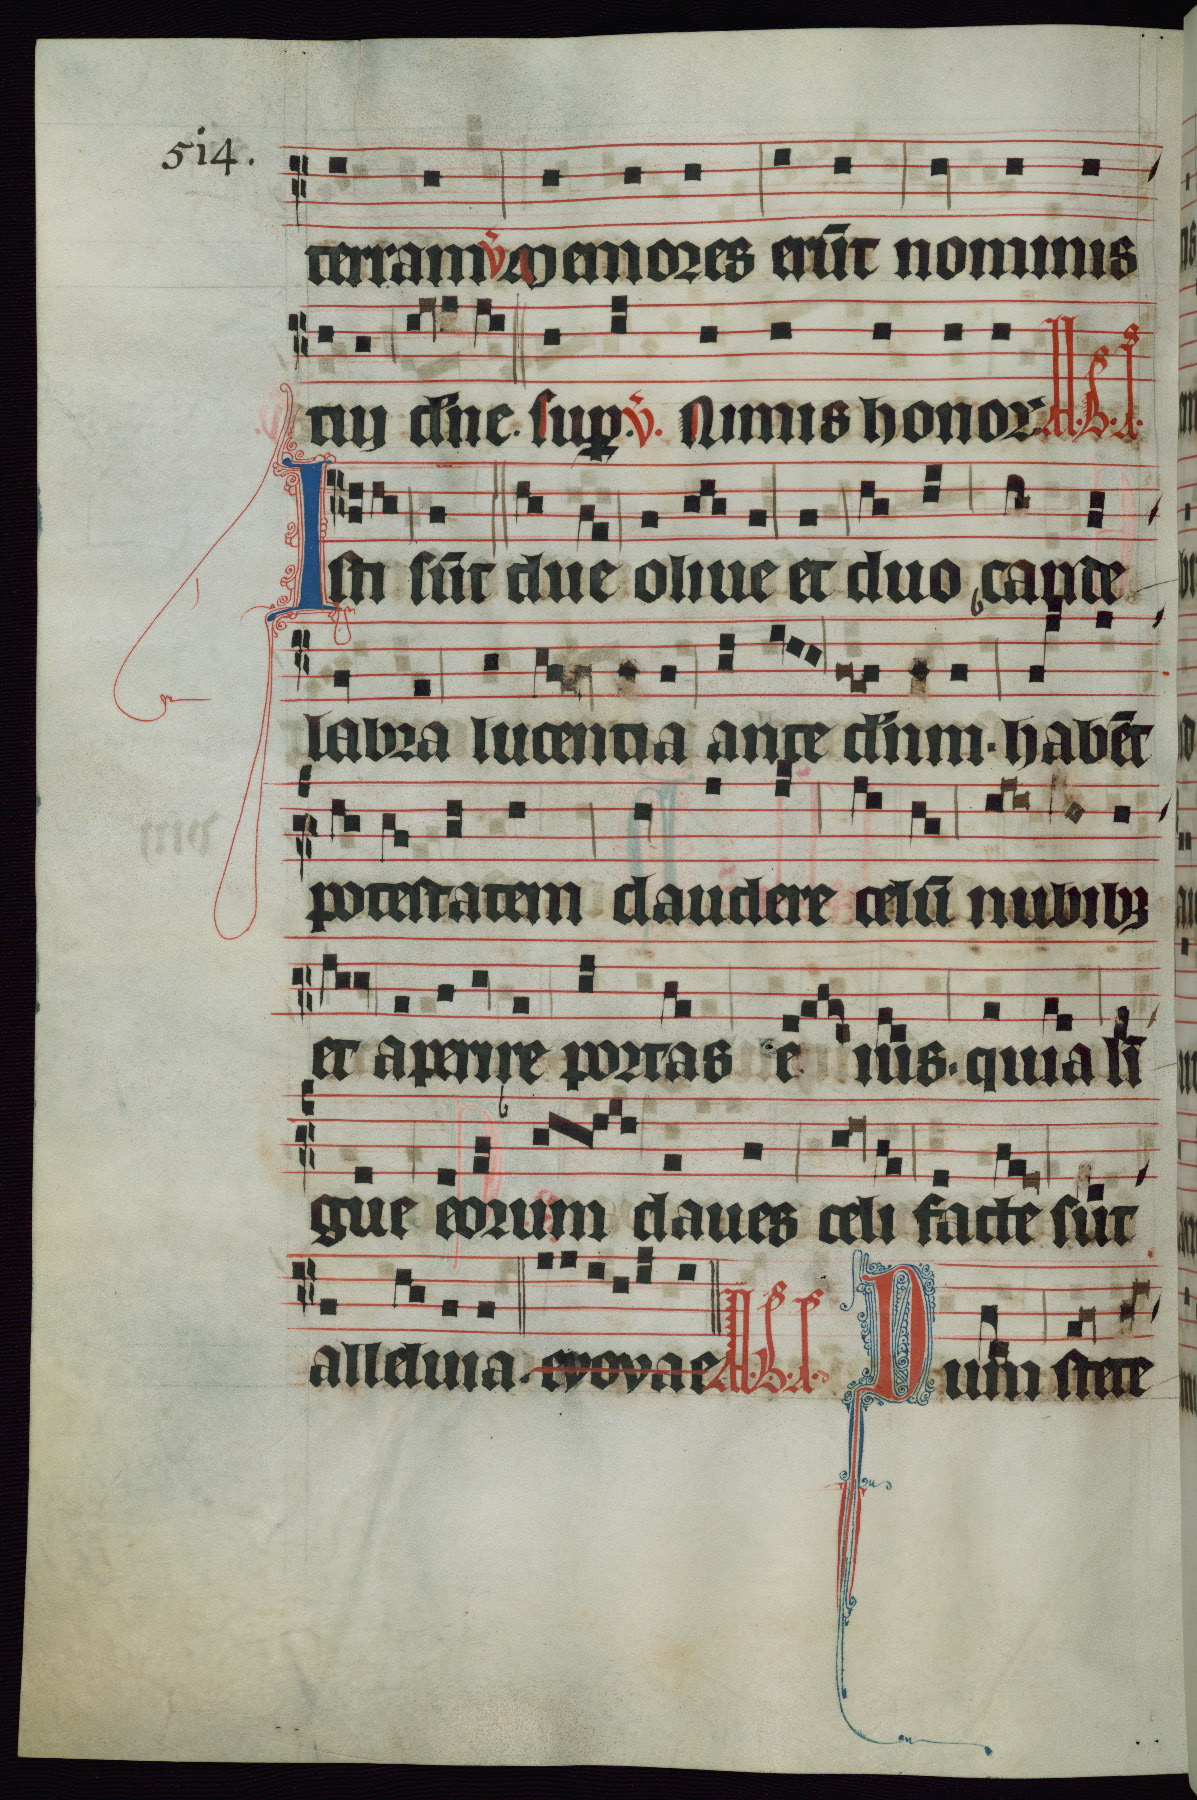 514.
terram v̄ memores erūt nominis
tui dn̄e. sup̱. v̄. Nimis honor. A.B.A.
Isti sūt due oliue et duo cande
labra lucentia ante dn̄m. habēt
potestatem claudere celū nubibꝫ
et aperire portas e ius. quia li
gue eorum claues celi facte sūt
alleluia. evovae A.B.A. Dum stete